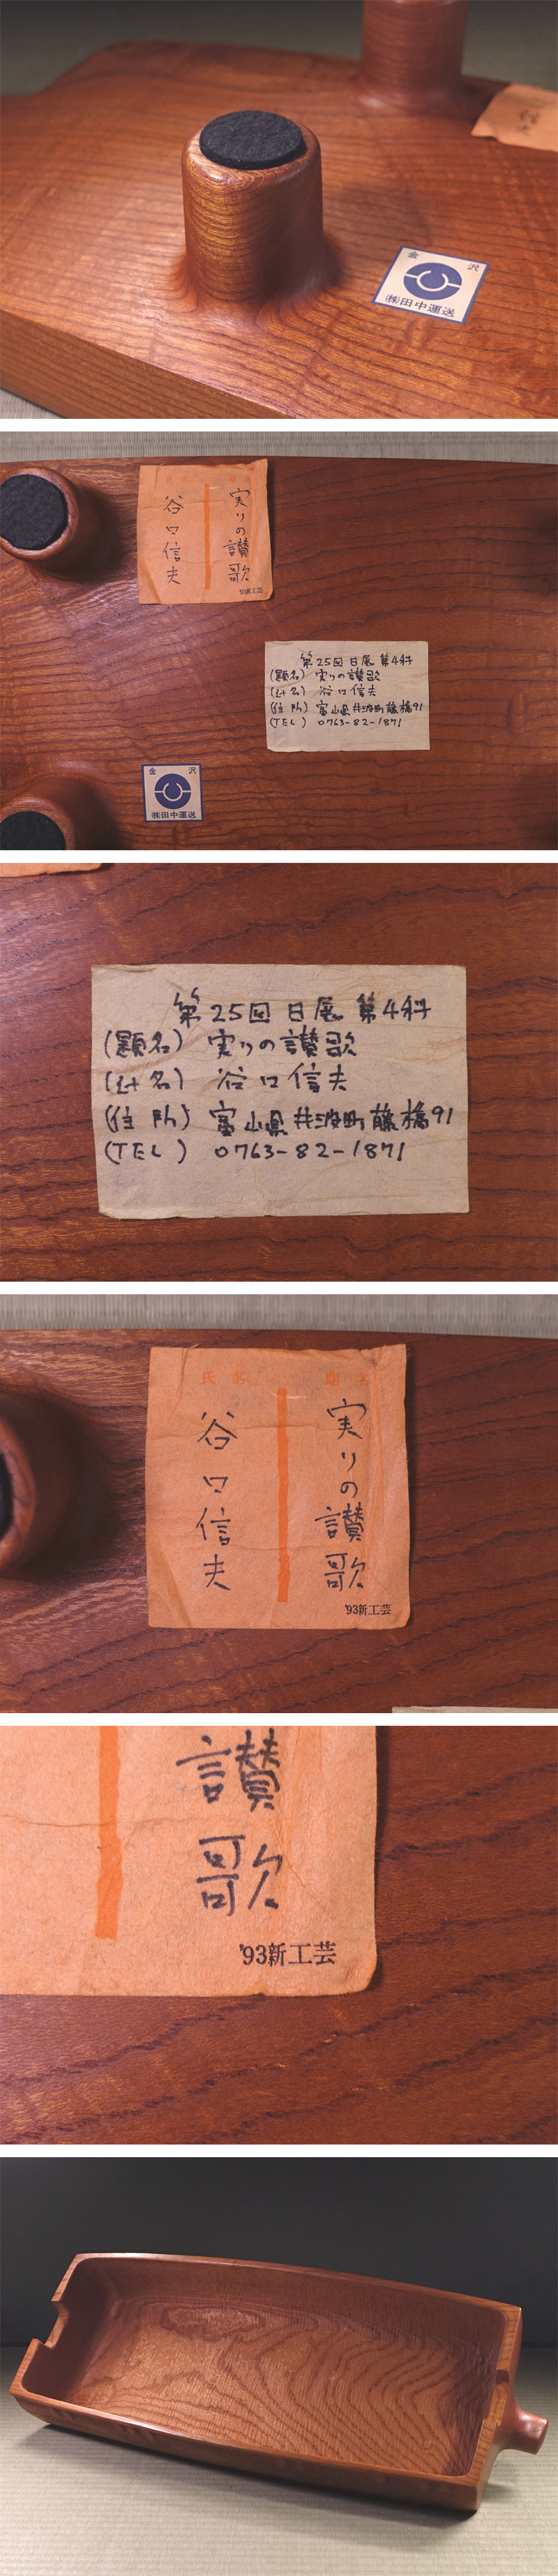 金 沢
㈱田中運送
実りの讃歌
谷口信夫
'93新工芸
第25回 日展 第4科
(題名) 実りの讃歌
(氏名) 谷口信夫
(住所) 富山県井波町藤橋91
(TEL) 0763-82-1871
金 沢
㈱田中運送
第25回 日展 第4科
(題名) 実りの讃歌
(氏名) 谷口信夫
(住所) 富山県井波町藤橋91
(TEL) 0763-82-1871
題名
実りの讃歌
氏名
谷口信夫
'93新工芸
讃歌
'93新工芸